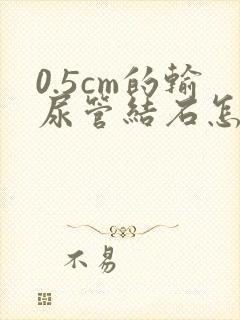 0.5cm的輸
尿管結石怎
不易